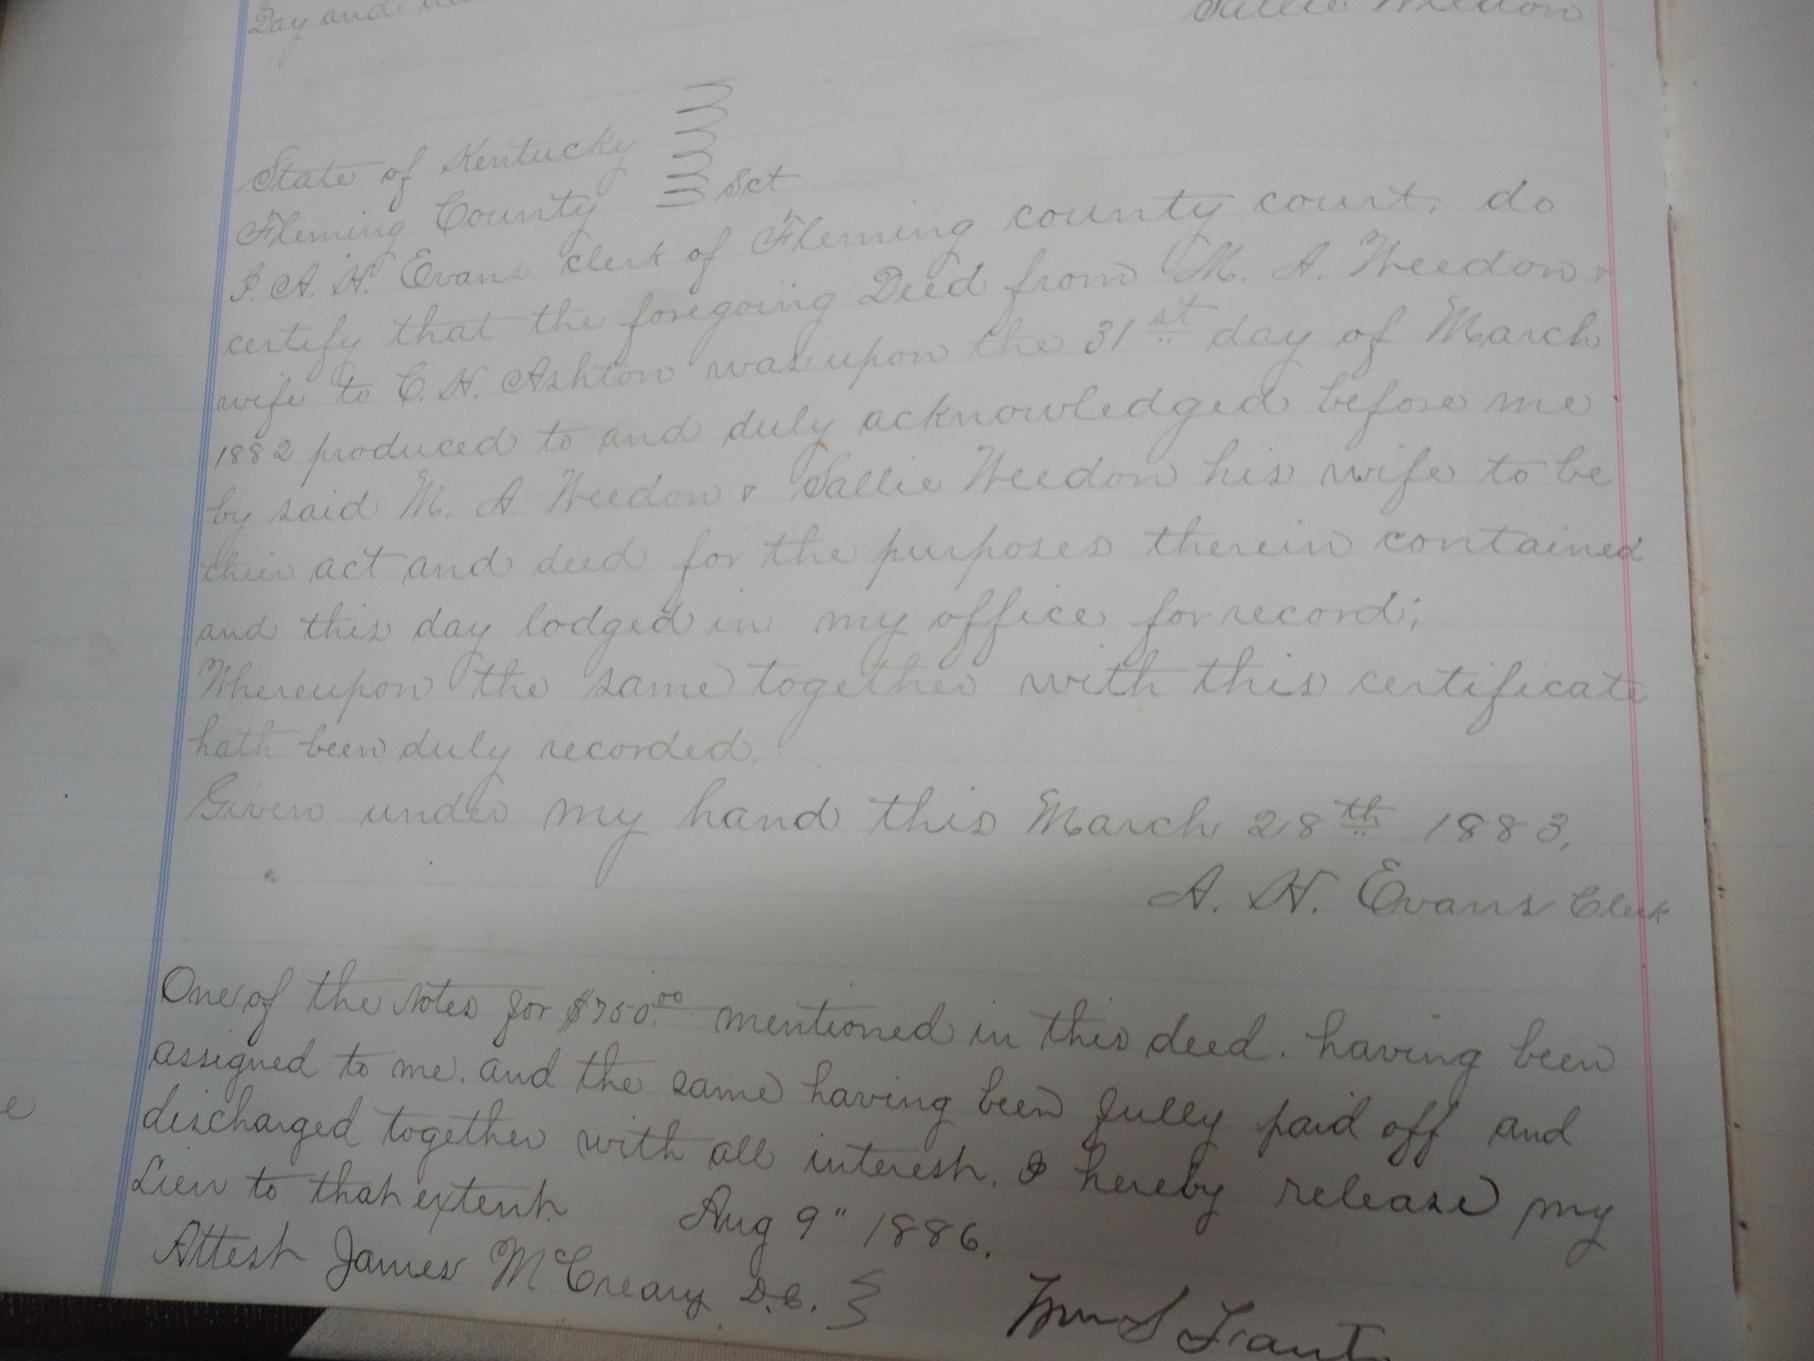 Day and
Sallie Weedon
State of Kentucky
Fleming County Sct
I. A. H. Evans clerk of Fleming county court, do
certify that the foregoing Deed from M. A. Weedon &
wife to C. H. Ashton was upon the 31st day of March
1882 produced to and duly acknowledged before me
by said M. A. Weedon & Sallie Weedon his wife to be
their act and deed for the purposes therein contained
and this day lodged in my office for record;
Whereupon the same together with this certificate
hath been duly recorded.
Given under my hand this March 28th 1883,
A. H. Evans Clerk
One of the Notes for $750.00 mentioned in this deed. having been
assigned to me. and the same having been fully paid off and
discharged together with all interest. I hereby release my
Lien to that extent. Aug 9" 1886.
Attest James McCreary D.C.
Wm S
e